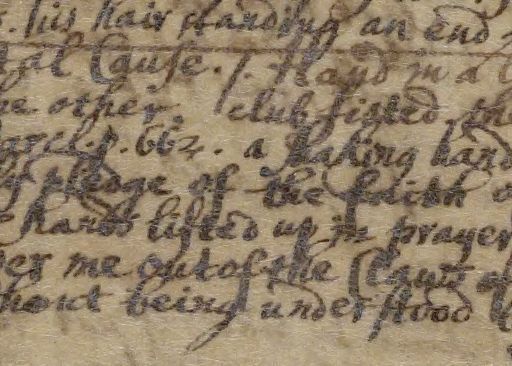 his hair standing an end
gal Cause. /. Hand in a
other clubfisted the
p. 662. a shaking hand
pledge of the faith
hands lifted up in prayer
me out of the Claws of
hout being understood